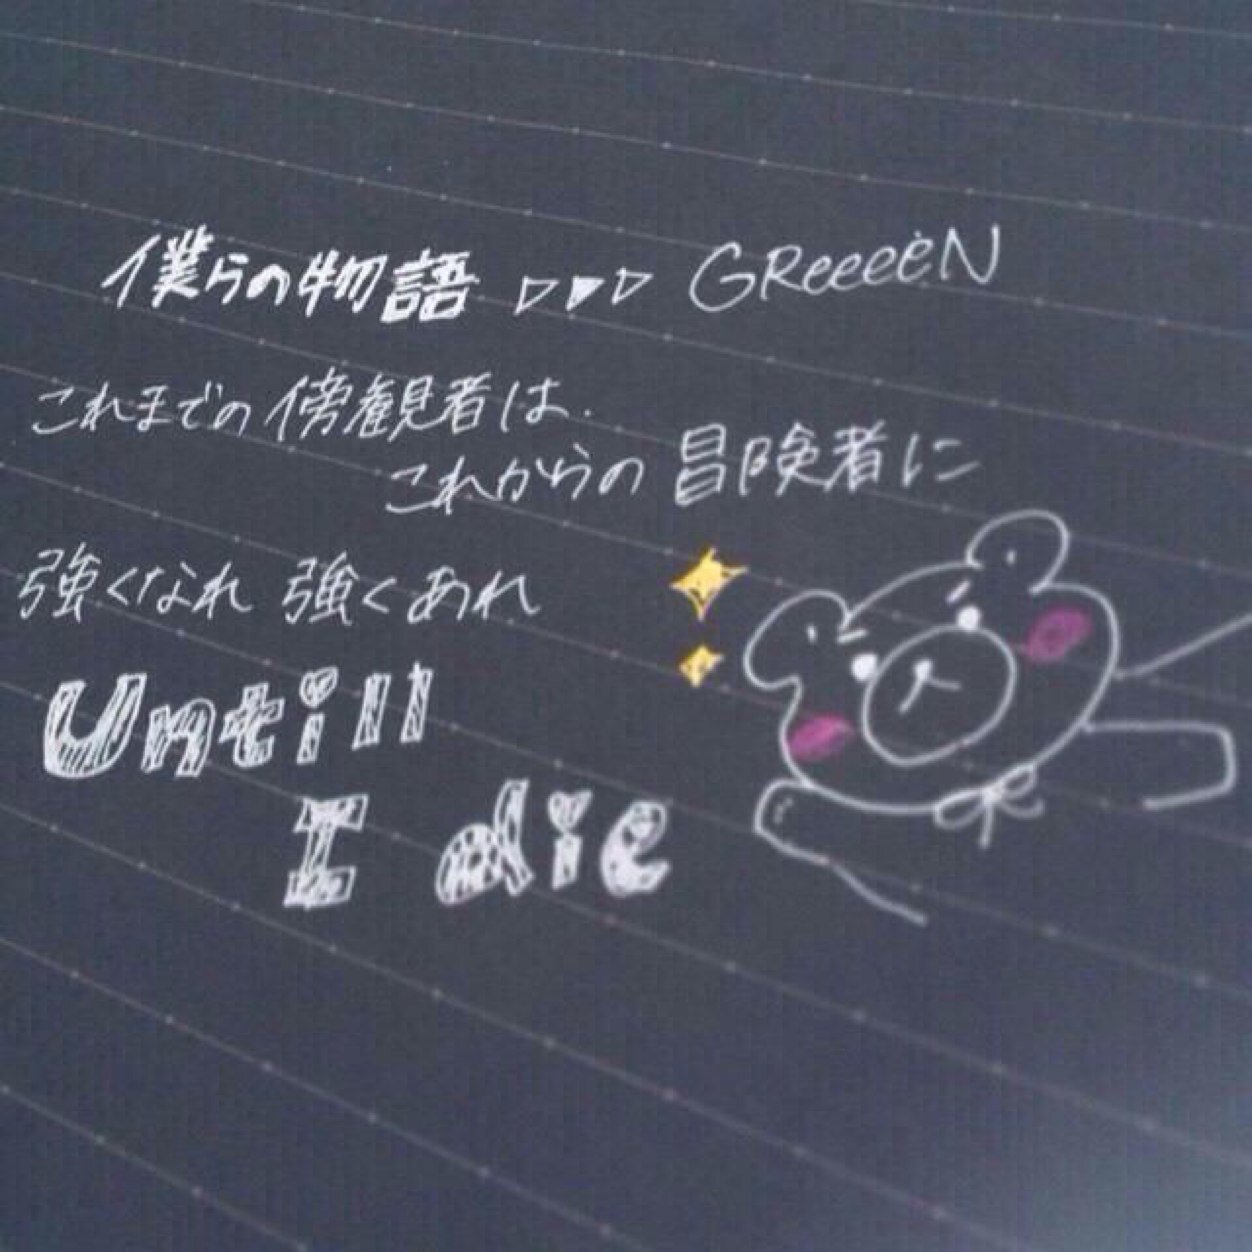 僕らの物語 ▷▶▷ GReeeeN
これまでの傍観者は.
これからの冒険者に
強くなれ 強くあれ
Untill
I die